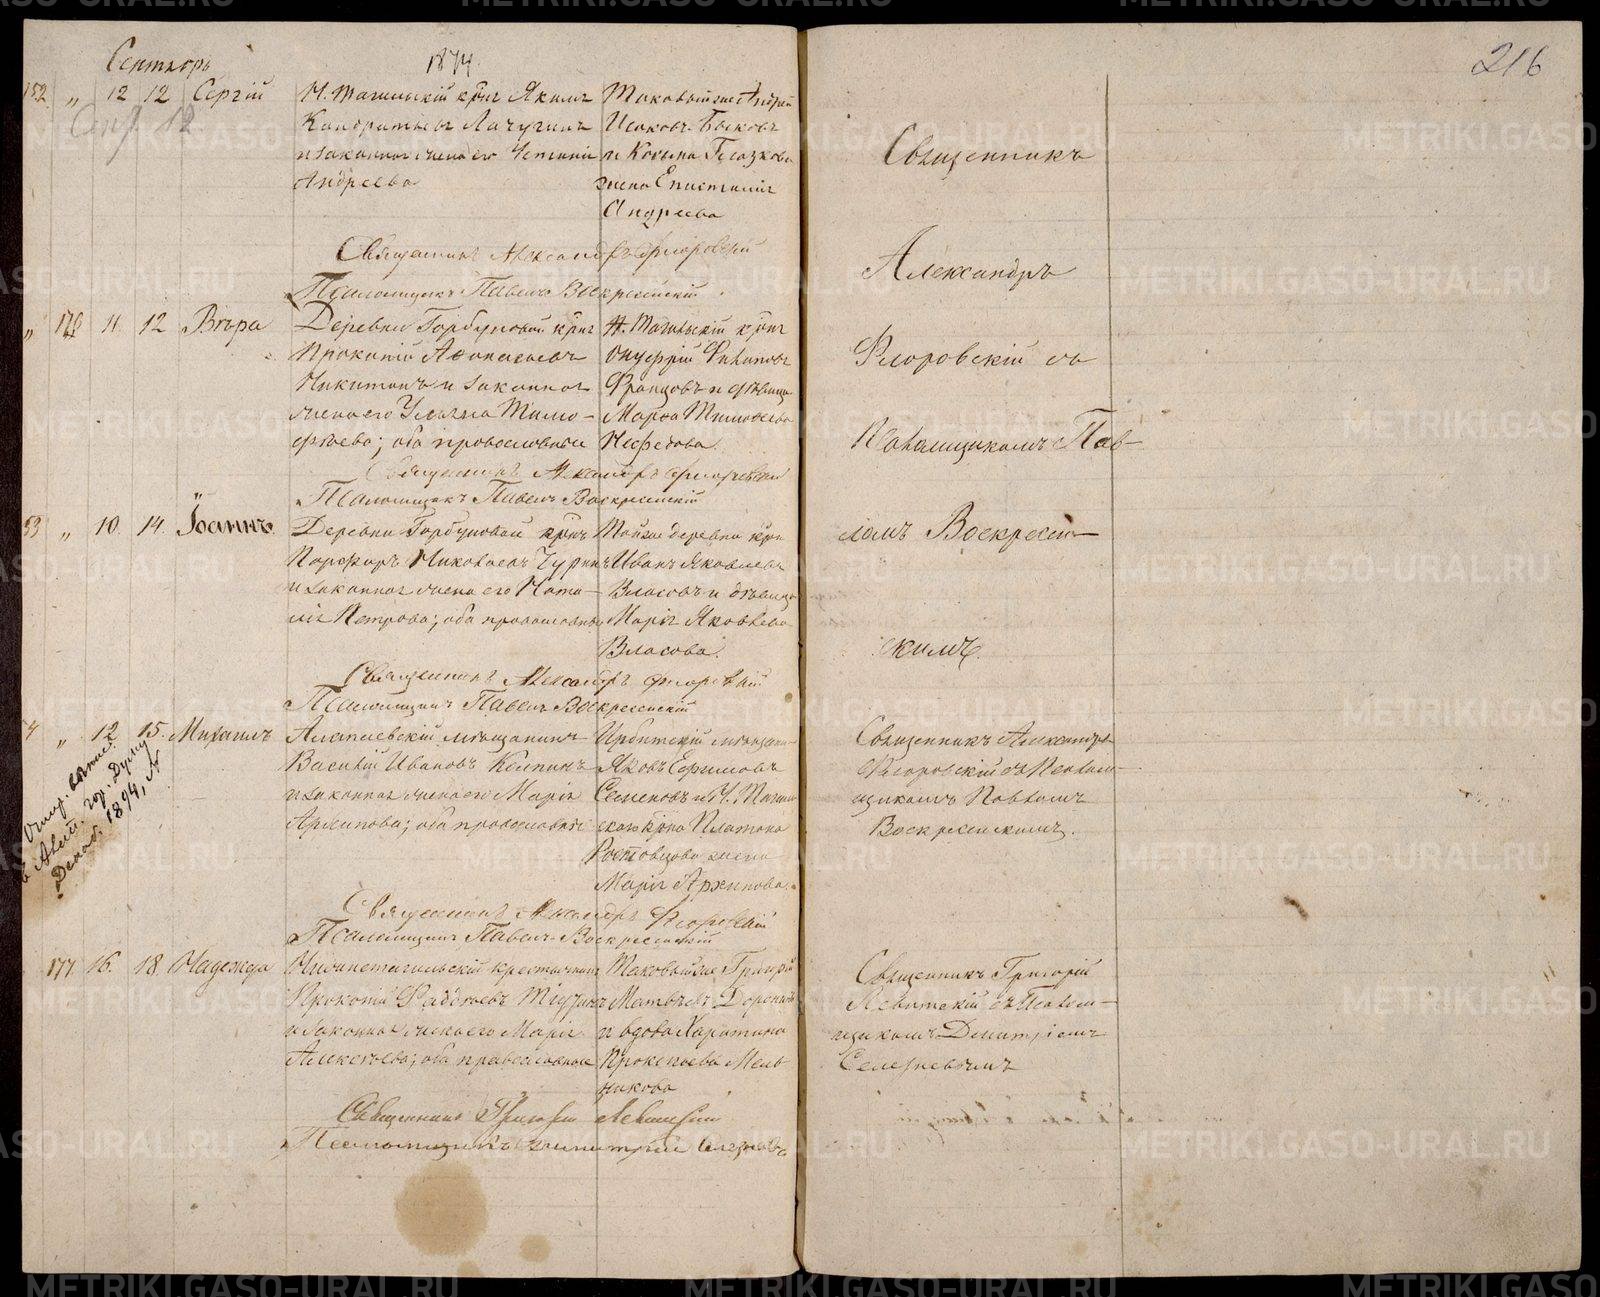 Сентябрь 1874.
216
152 " 12 12 Сергій
Н. Тагильскій крнг Якимъ
Кандратьевъ Лачугинъ
и законная жена его Устинія
Андреева
Таковый же Андрей
Исаковъ Быковъ
и Косьмы Глазкова
жена Епистимія
Андреева
Сент 12
Священникъ Александръ Флоровскій
Псаломщикъ Павелъ Воскресенскій
Священникъ
Александръ
Флоровскій съ
Псаломщикомъ Пав-
ломъ Воскресен-
скимъ.
" 176 11. 12 Вѣра
Деревни Горбуновой крнг
Прокопій Аѳанасьевъ
Никитинъ и законная
жена его Ульяна Тимо-
феева; оба православные
Н. Тагильскій крнг
Онуфрій Филиповъ
Францовъ и дѣвица
Марѳа Тимоѳеева
Нефедова.
Священникъ Александръ Флоровскій
Псаломщикъ Павелъ Воскресенскій
53 " 10. 14. Іоаннъ.
Деревни Горбуновой крнг
Порфиръ Николаевъ Чуринъ
и законная жена его Ната-
лія Петрова; оба православные
Тойже деревни крнг
Иванъ Яковлевъ
Власовъ и дѣвица
Марія Яковлева
Власова.
Священникъ Александръ Флоровскій
Псаломщикъ Павелъ Воскресенскій
4 " 12 15. Михаилъ
Алапаевскій мѣщанинъ
Василій Ивановъ Колпинъ
и законная жена его Марія
Архипова; оба православные
Ирбитскій мѣщани-
Яковъ Ефимовъ
Семеновъ и Н. Тагил
скаго крна Платона
Ростовцова жена
Марія Архипова.
Священникъ Александръ
Флоровскій съ Псалом-
щикомъ Павломъ
Воскресенскимъ.
Декаб. 1894, №
Священникъ Александръ Флоровскій
Псаломщикъ Павелъ Воскресенскій
177. 16. 18 Надежда
Нижнетагильскій крестьянинъ
Прокопій
и законная жена его Марія
Алексѣева; оба православные
Таковый же Григорій
Матвѣевъ
и вдова Харитина
Прокопьева Мель-
никова
Священникъ Григорій
Левитскій съ Псалом-
щикомъ Димитріемъ
Селезневымъ
Священникъ Григорій Левитскій
Псаломщикъ Димитрій Селезневъ
METRIKI.GASO-URAL.RU